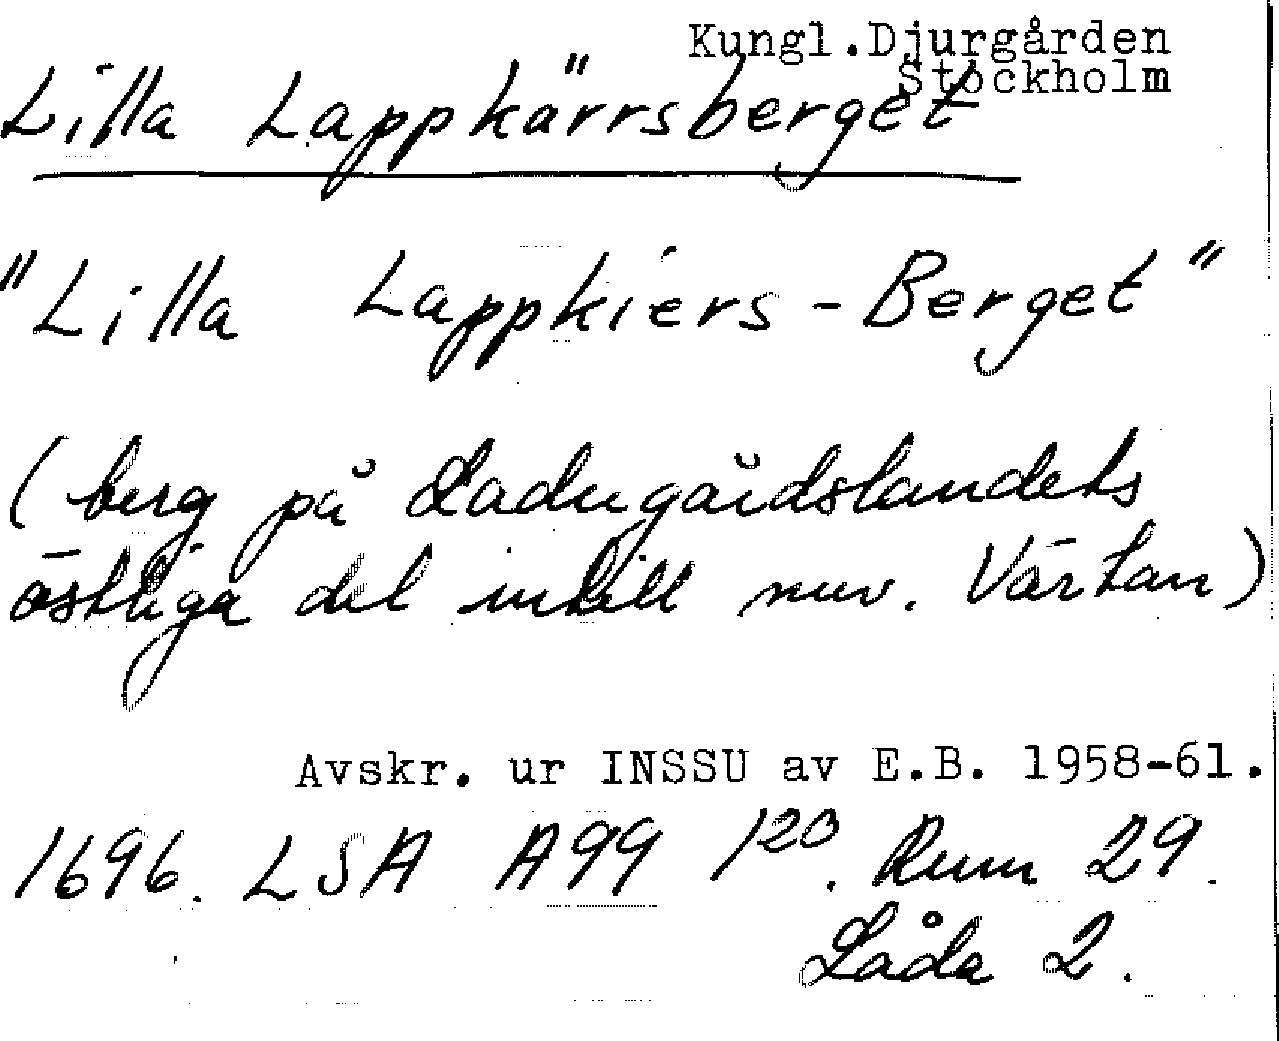 Kungl.Djurgården
Stockholm
Lilla Lappkärrsberget
"Lilla Lappkiers-Berget"
(berg på Ladugårdslandets
östliga del intill nuv. Värtan)
Avskr. ur INSSU av E.B. 1958-61.
1696. LSA A99 1²⁰. Rum 29.
Låda 2.